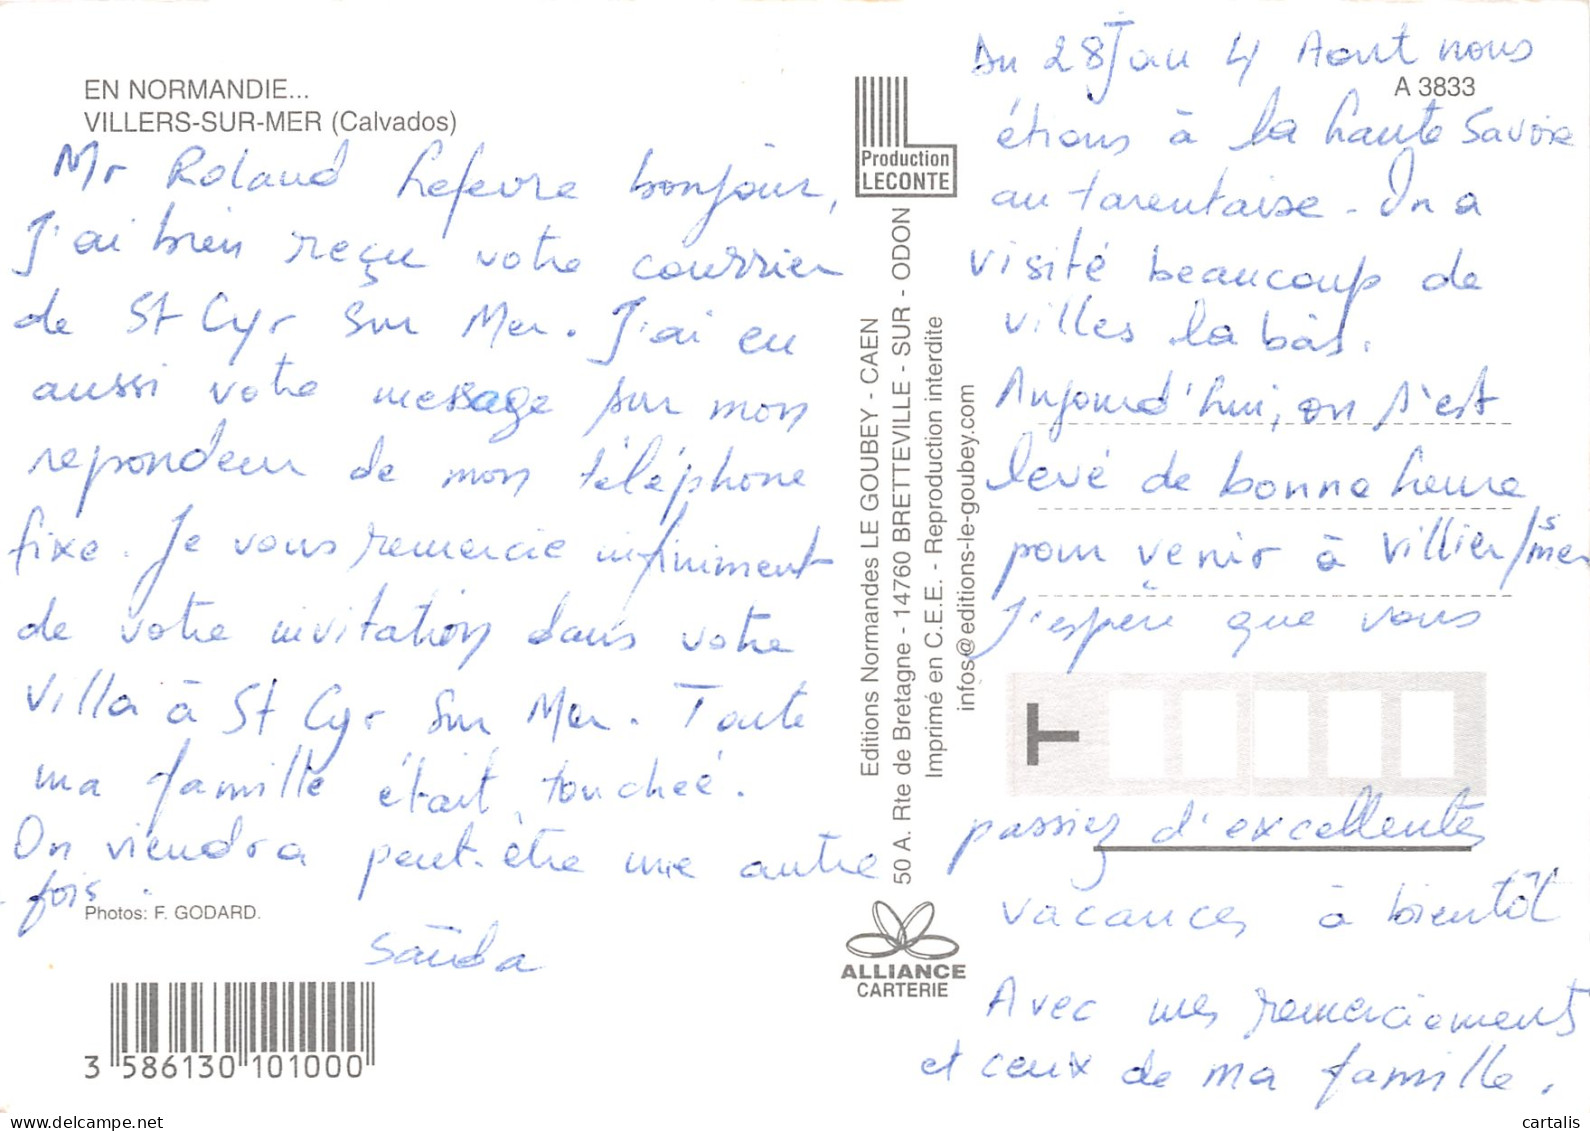 EN NORMANDIE...
VILLERS-SUR-MER (Calvados)
Mr Roland Lefevre bonjour,
J'ai bien reçu votre courrier
de St Cyr Sur Mer. J'ai eu
aussi votre message sur mon
repondeur de mon téléphone
fixe. Je vous remercie infiniment
de votre invitation dans votre
villa à St Cyr Sur Mer. Toute
ma famille était touchée.
On viendra peut-être une autre
fois.
Photos: F. GODARD.
Saïda
3 586130 101000
Production
LECONTE
Editions Normandes LE GOUBEY - CAEN
50 A. Rte de Bretagne - 14760 BRETTEVILLE - SUR - ODON
Imprimé en C.E.E. - Reproduction interdite
infos@editions-le-goubey.com
ALLIANCE
CARTERIE
Du 28 J au 4 Aout nous
A 3833
étions à la haute Savoie
au tarentaise - On a
visité beaucoup de
villes la bàs.
Aujourd'hui, on s'est
levé de bonne heure
pour venir à Villier/s mer
J'espère que vous
T
passiez d'excellentes
vacances à bientôt
Avec mes remerciements
et ceux de ma famille.